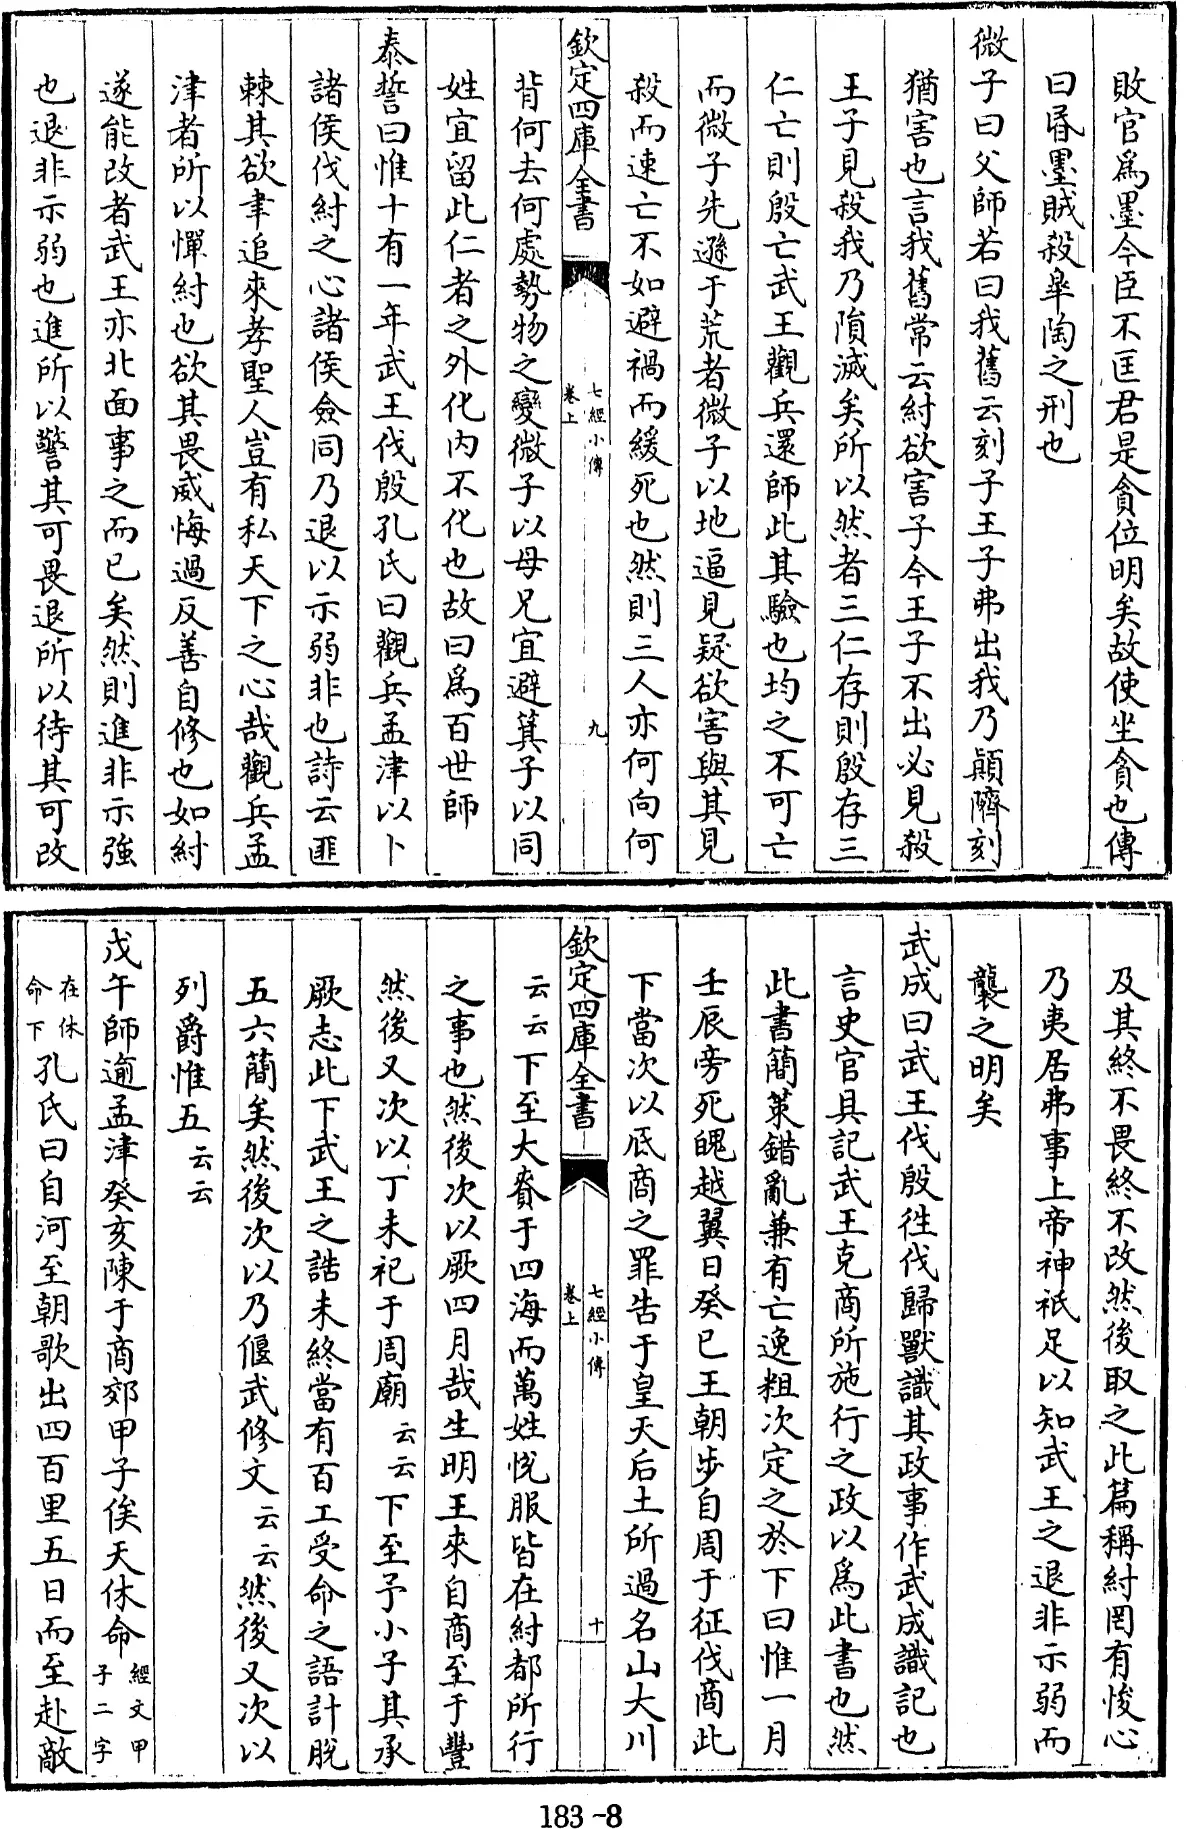 敗官為墨今臣不匡君是貪位明矣故使坐貪也傳
曰昏墨賊殺臯陶之刑也
微子曰父師若曰我舊云刻子王子弗出我乃顛隮刻
猶害也言我舊常云紂欲害子今王子不出必見殺
王子見殺我乃隕滅矣所以然者三仁存則殷存三
仁亡則殷亡武王觀兵還師此其驗也均之不可亡
而微子先遯于荒者微子以地逼見疑欲害與其見
殺而速亡不如避禍而緩死也然則三人亦何向何
欽定四庫全書
七經小傳
卷上
九
背何去何處勢物之變微子以母兄宜避箕子以同
姓宜留此仁者之外化内不化也故曰為百世師
泰誓曰惟十有一年武王伐殷孔氏曰觀兵孟津以卜
諸侯伐紂之心諸侯僉同乃退以示弱非也詩云匪
棘其欲聿追來孝聖人豈有私天下之心哉觀兵孟
津者所以憚紂也欲其畏威悔過反善自修也如紂
遂能改者武王亦北面事之而已矣然則進非示強
也退非示弱也進所以警其可畏退所以待其可改
及其終不畏終不改然後取之此篇稱紂罔有悛心
乃夷居弗事上帝神祇足以知武王之退非示弱而
襲之明矣
武成曰武王伐殷徃伐歸獸識其政事作武成識記也
言史官具記武王克商所施行之政以為此書也然
此書簡策錯亂兼有亡逸粗次定之於下曰惟一月
壬辰旁死魄越翼日癸巳王朝步自周于征伐商此
下當次以底商之罪告于皇天后土所過名山大川
欽定四庫全書
七經小傳
卷上
十
云云下至大賚于四海而萬姓悅服皆在紂都所行
之事也然後次以厥四月哉生明王來自商至于豐
然後又次以丁未祀于周廟云云下至予小子其承
厥志此下武王之誥未終當有百工受命之語計脫
五六簡矣然後次以乃偃武修文云云然後又次以
列爵惟五云云
戊午師逾孟津癸亥陳于商郊甲子俟天休命經文甲子二字
在休命下孔氏曰自河至朝歌出四百里五日而至赴敵
183-8